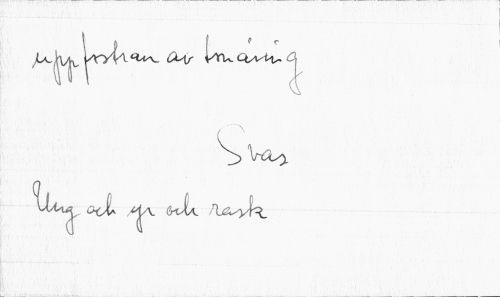 uppfostran av tonåring
Svar
Ung och yr och rask